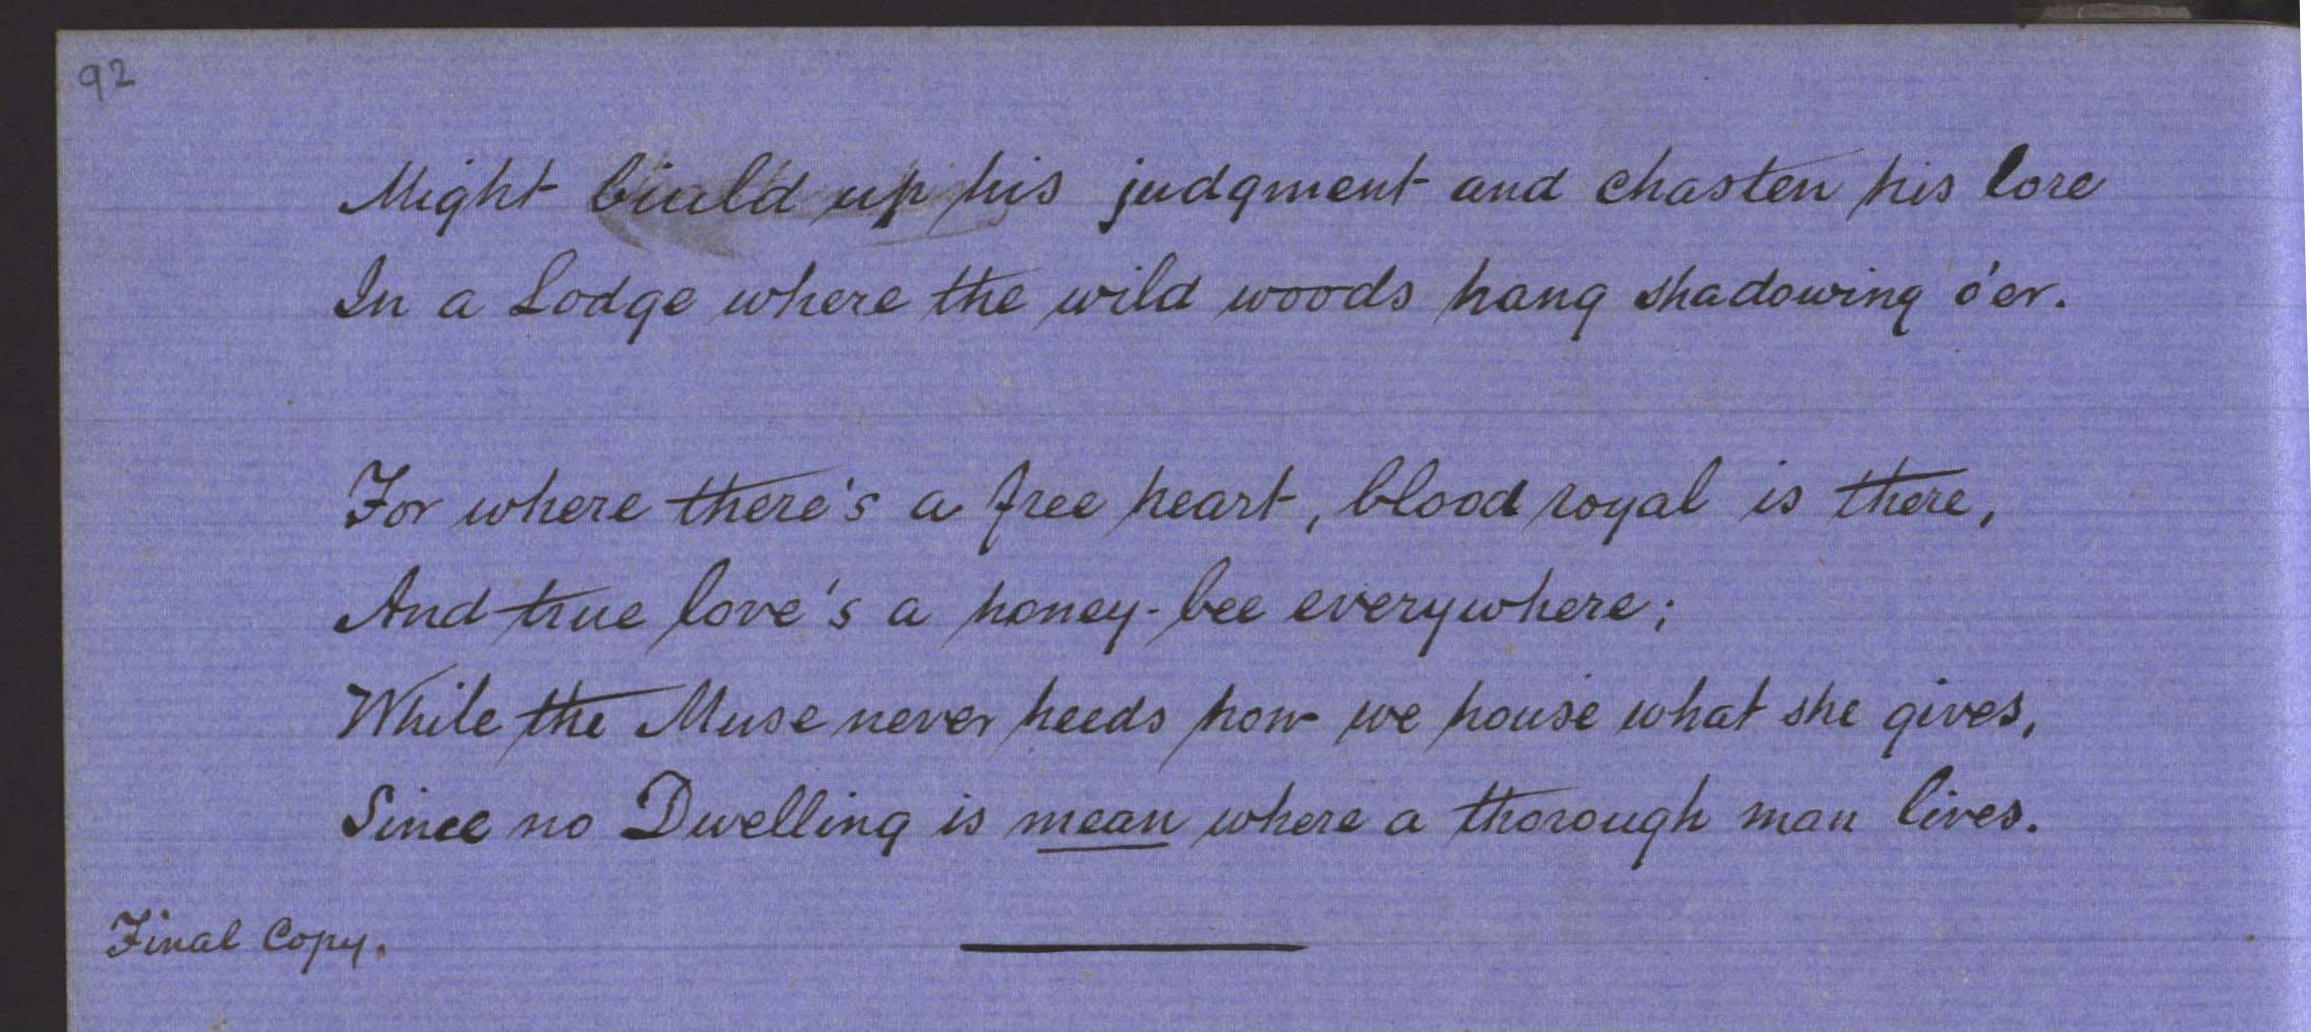 92
Might biuld up his judgment and chasten his lore
In a Lodge where the wild woods hang shadowing o'er.
For where there's a free heart, blood royal is there,
And true love's a honey-bee everywhere;
While the Muse never heeds how we house what she gives,
Since no Dwelling is mean where a thorough man lives.
Final Copy.